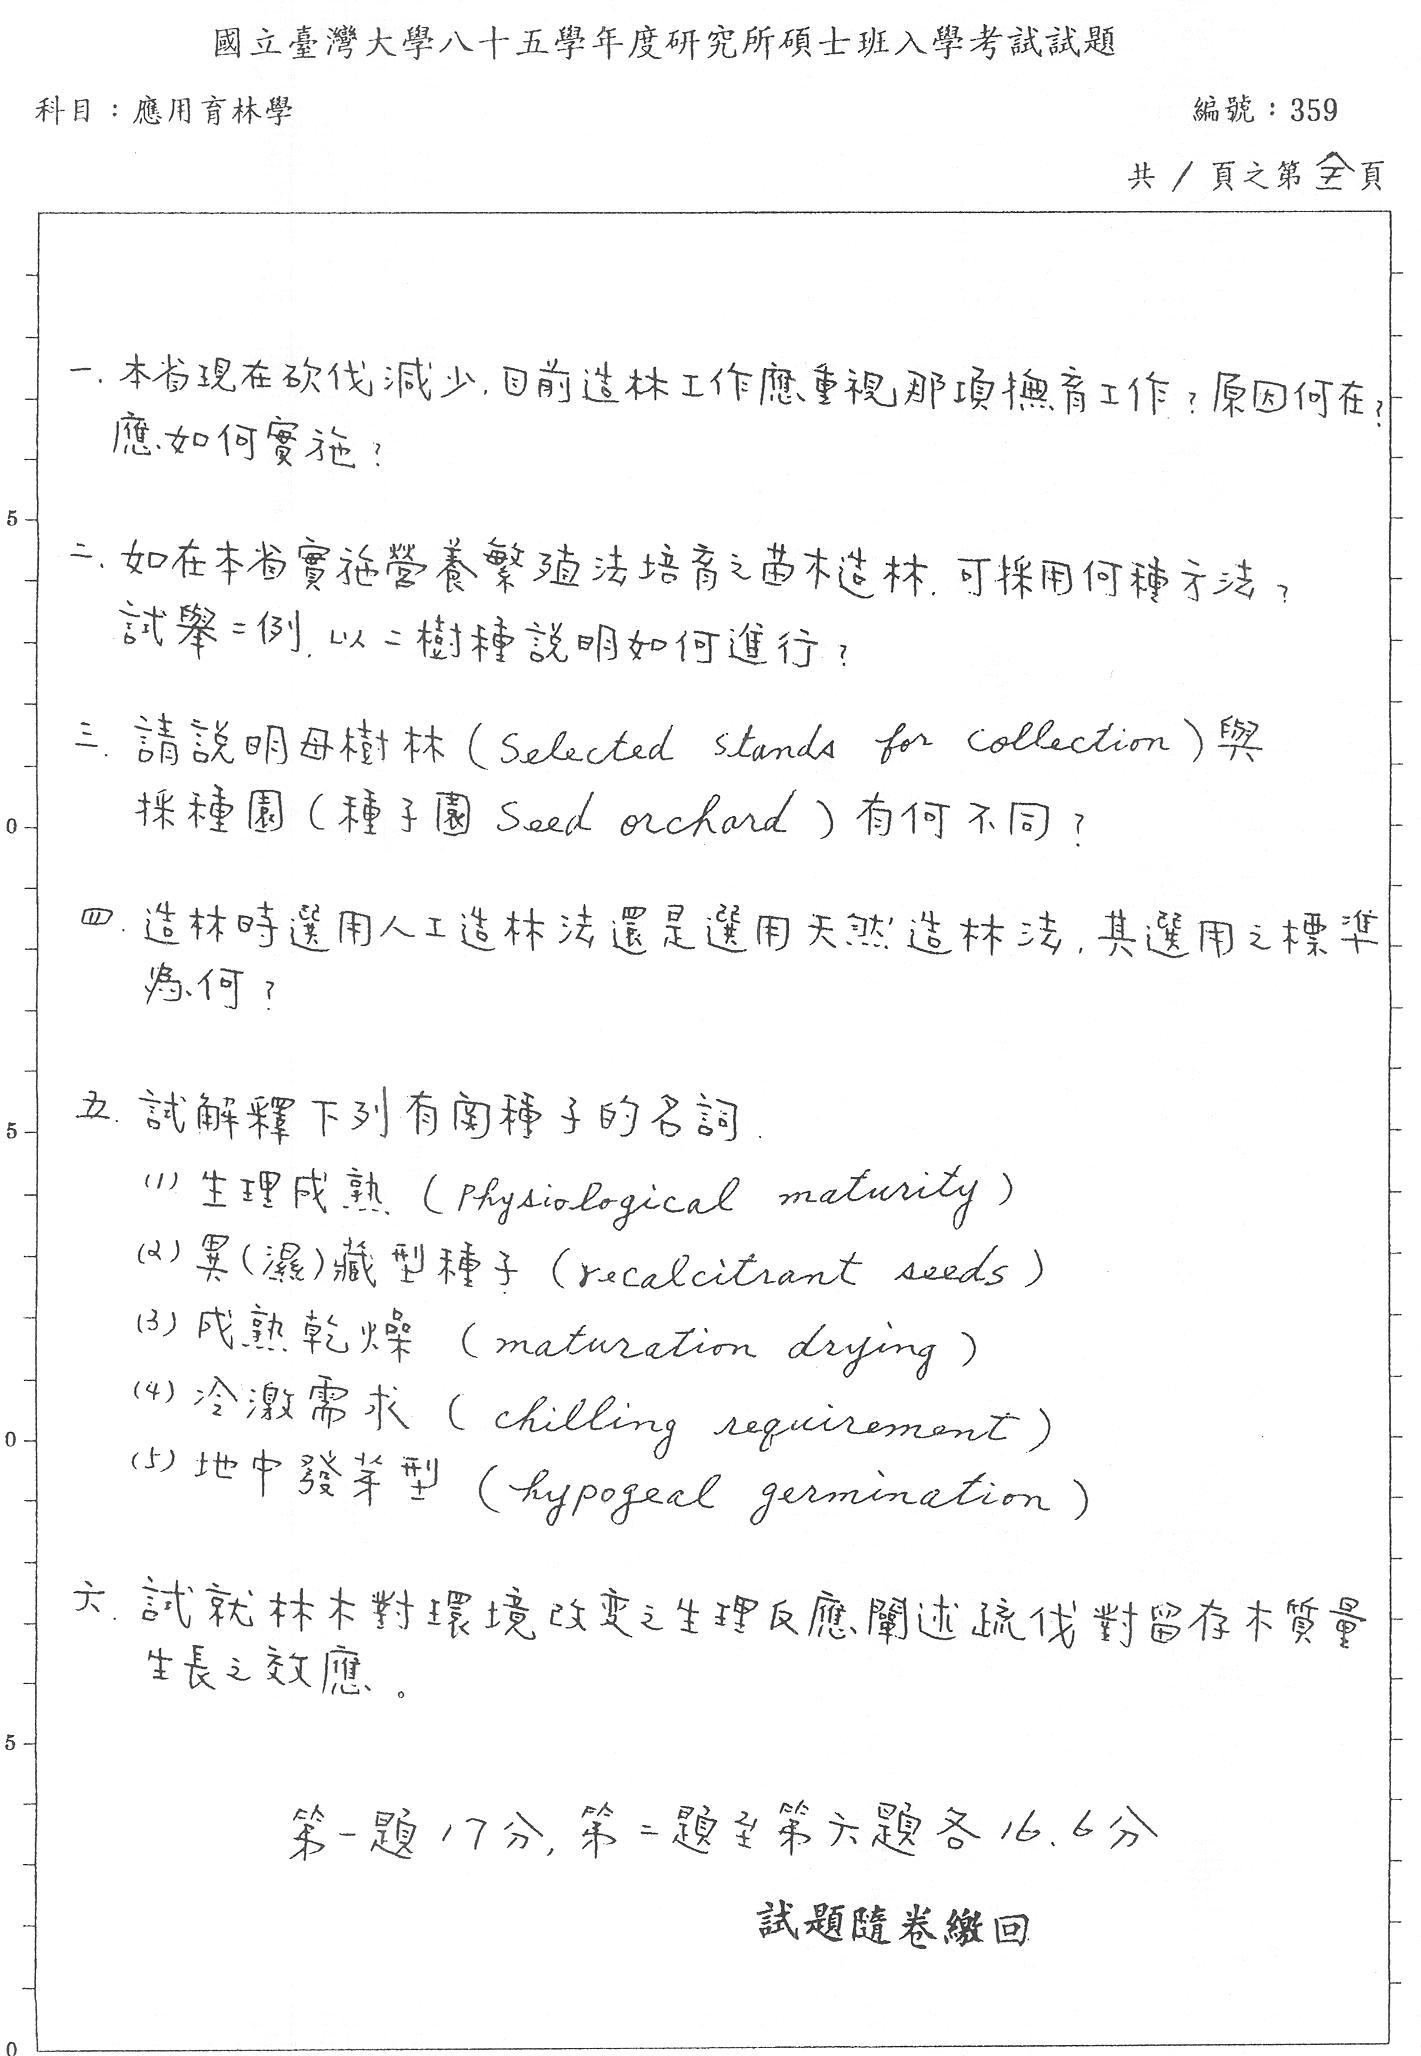 國立臺灣大學八十五學年度研究所碩士班入學考試試題
科目：應用育林學
編號：359
共1頁之第全頁
一. 本省現在砍伐減少, 目前造林工作應重視那項撫育工作? 原因何在?
應如何實施?
5
二. 如在本省實施營養繁殖法培育之苗木造林, 可採用何種方法?
試舉二例, 以二樹種説明如何進行?
三. 請説明母樹林 (Selected stands for collection) 與
採種園 (種子園 Seed orchard) 有何不同?
0
四. 造林時選用人工造林法還是選用天然造林法, 其選用之標準
為何?
五. 試解釋下列有関種子的名詞.
5
(1) 生理成熟 (physiological maturity)
(2) 異(濕)藏型種子 (recalcitrant seeds)
(3) 成熟乾燥 (maturation drying)
(4) 冷激需求 (chilling requirement)
0
(5) 地中發芽型 (hypogeal germination)
六. 試就林木對環境改变之生理反應闡述疏伐對留存木質量
生長之效應。
5
第一題17分, 第二題至第六題各16.6分
試題隨卷繳回
0